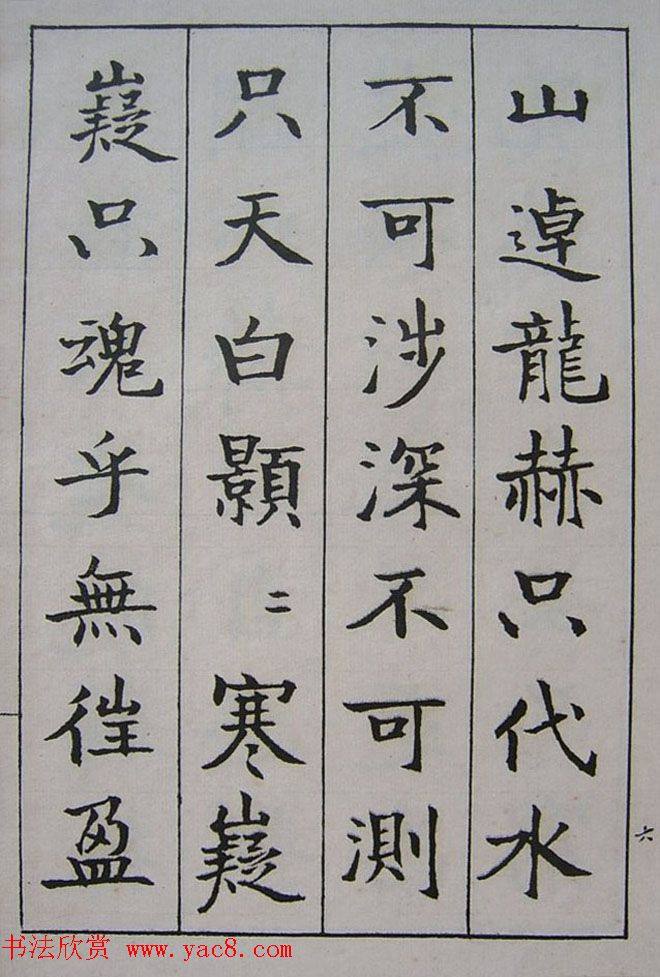 山逴龍赫只代水
不可涉深不可測
只天白顥二寒嶷
嶷只魂乎無往盈
六
书法欣赏 www.yac8.com